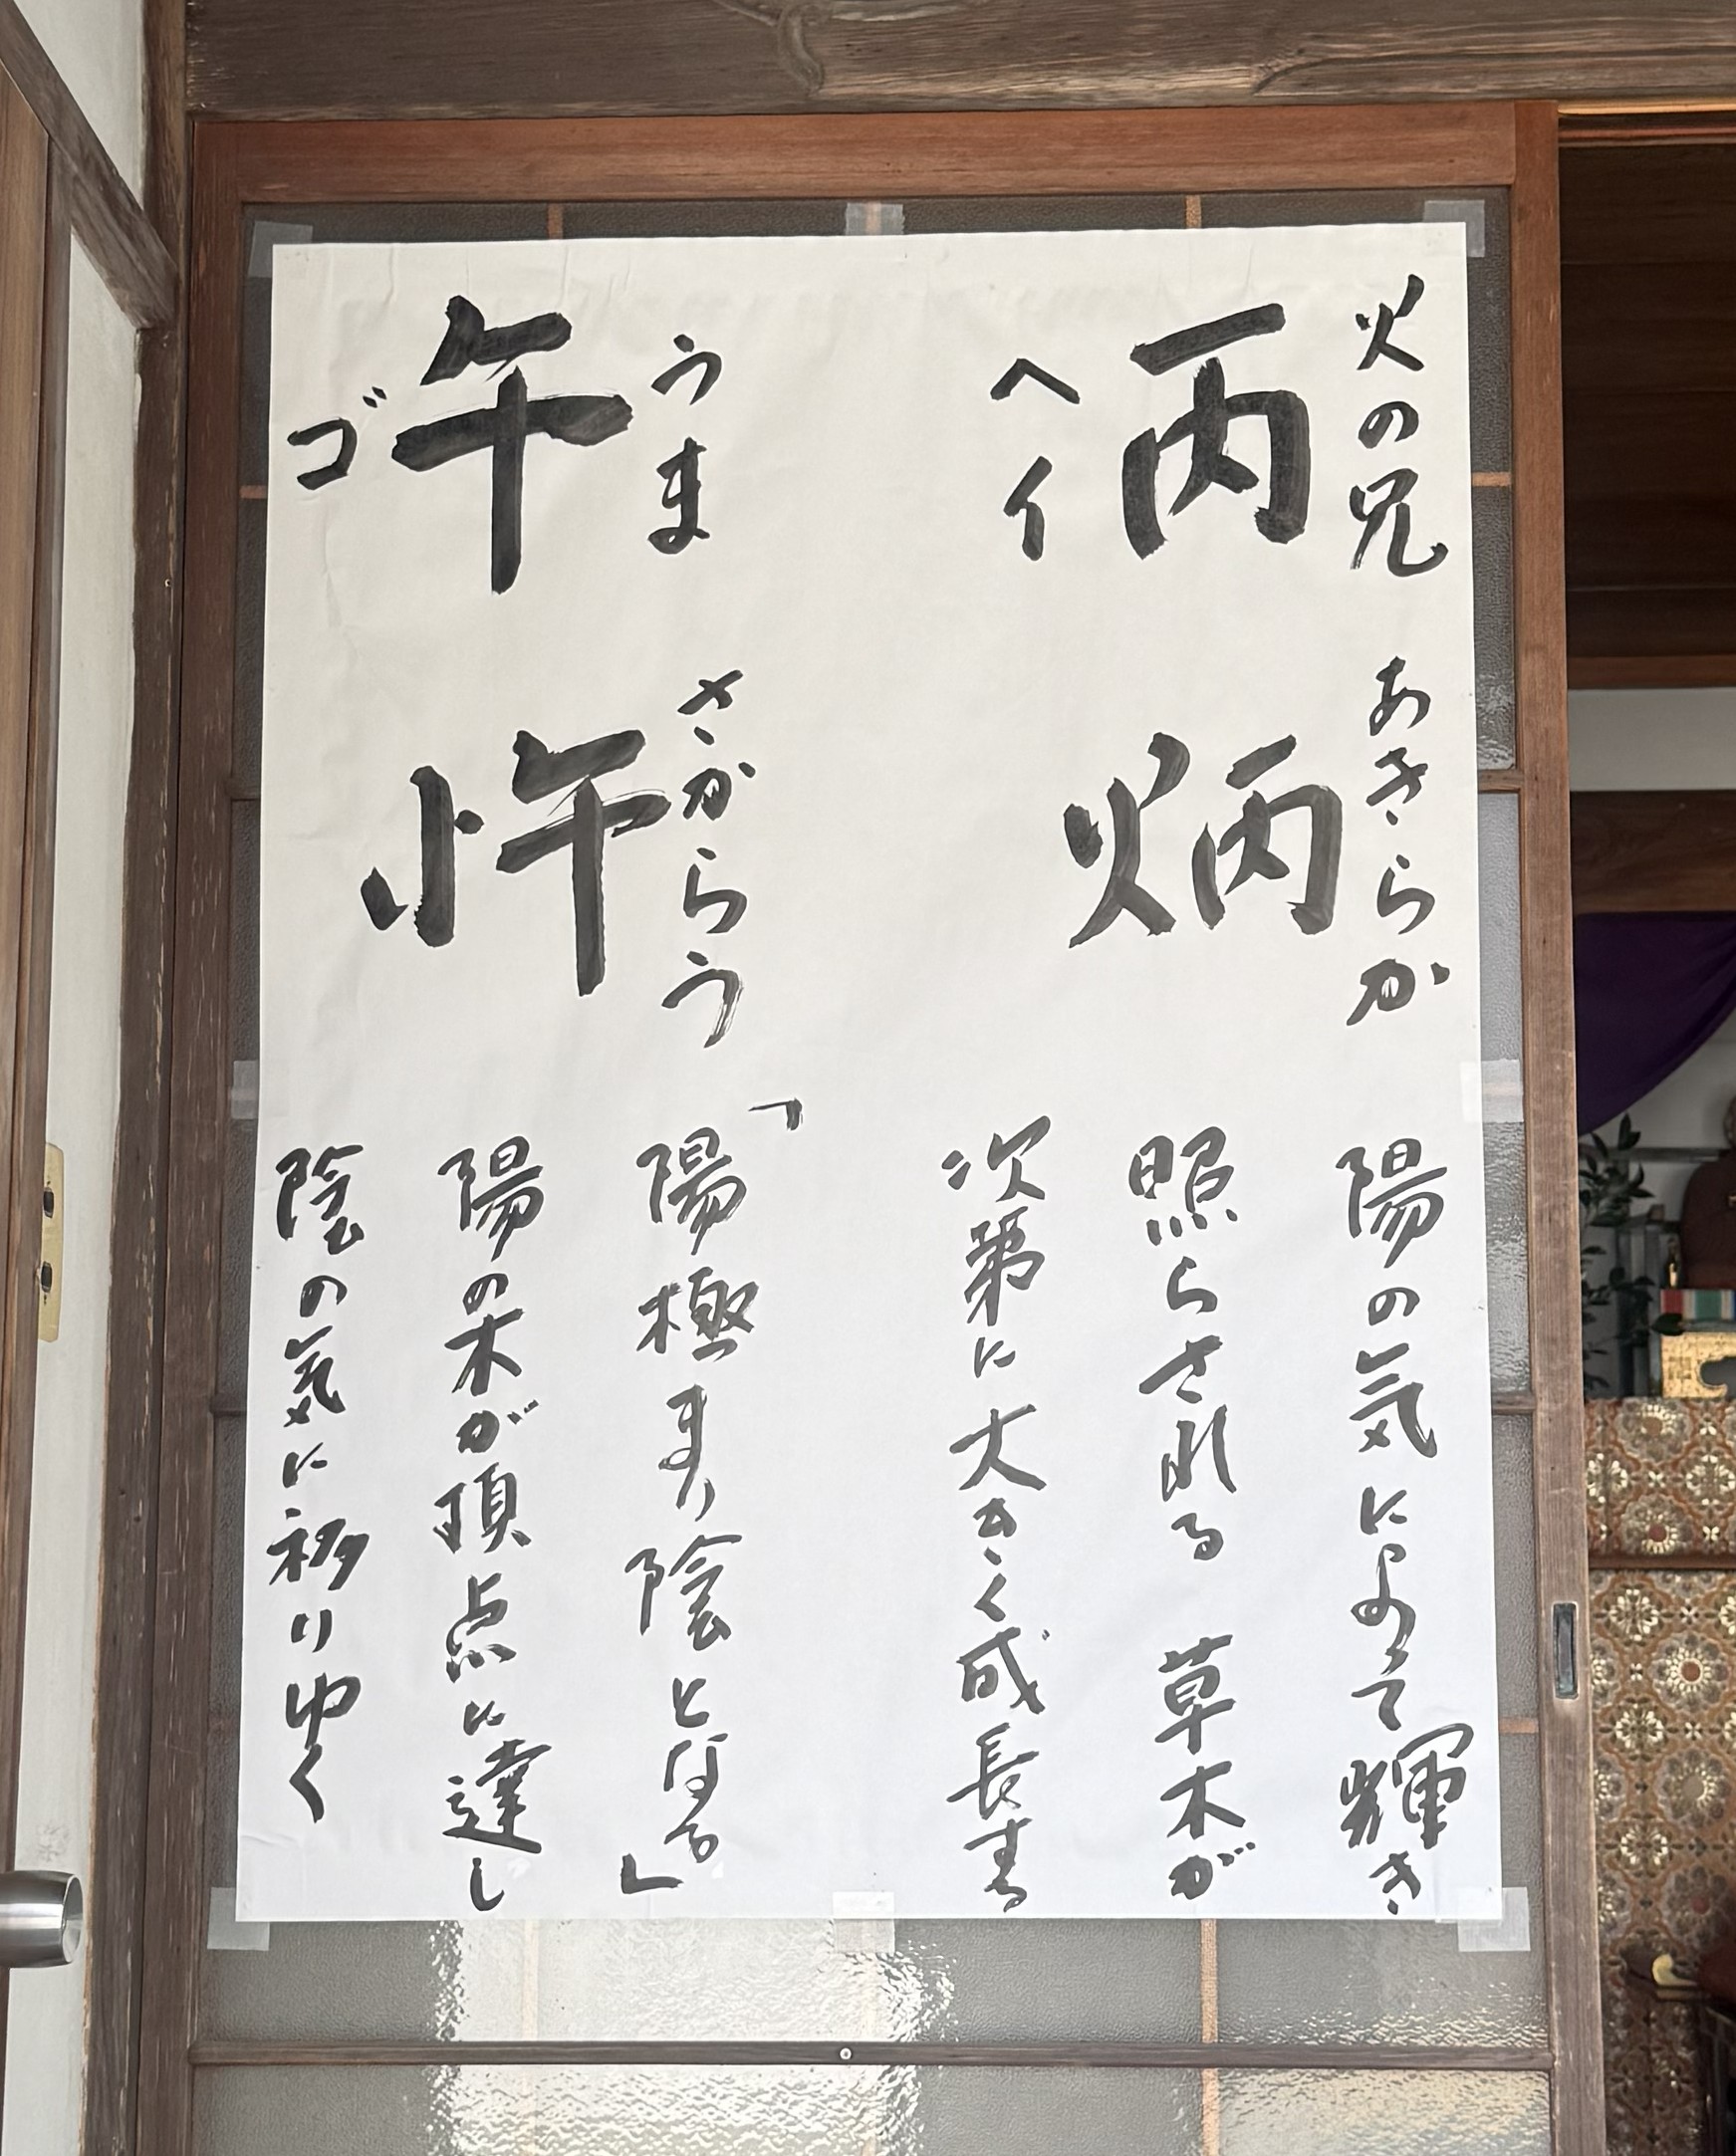 火の兄
丙
ヘイ
あきらか
炳
陽の気によって輝き
照らされる草木が
次第に大きく成長する
うま
午
ゴ
さからう
忤
「陽極まり陰となる」
陽の木が頂点に達し
陰の気に移りゆく